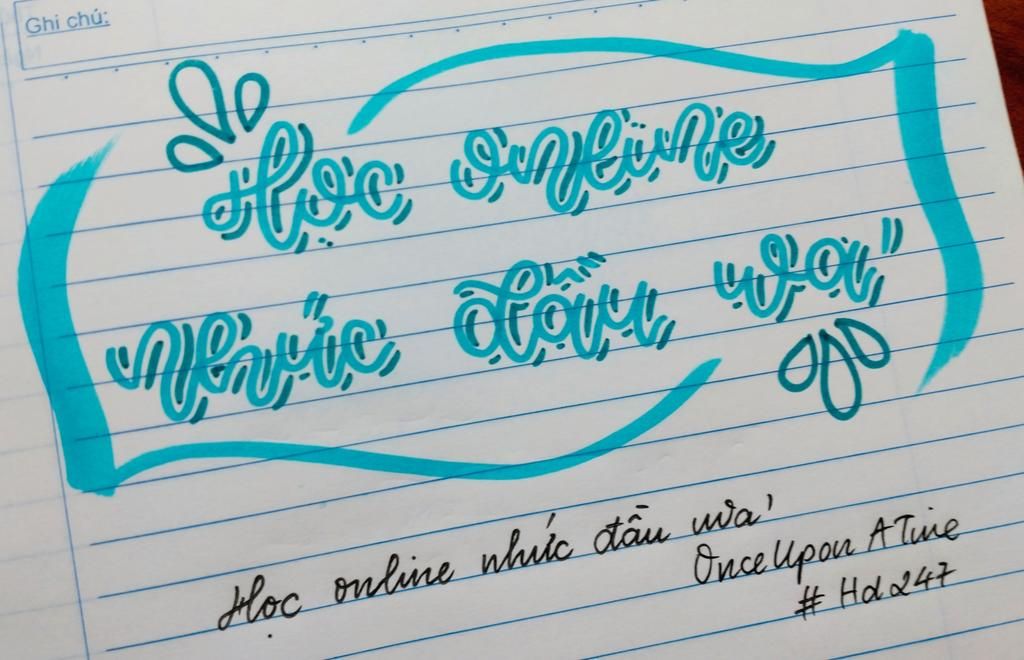 Ghi chú:
Học online
nhức đầu ưa'
Học online nhức đầu ưa'
Once Upon A Time
# Hd 247